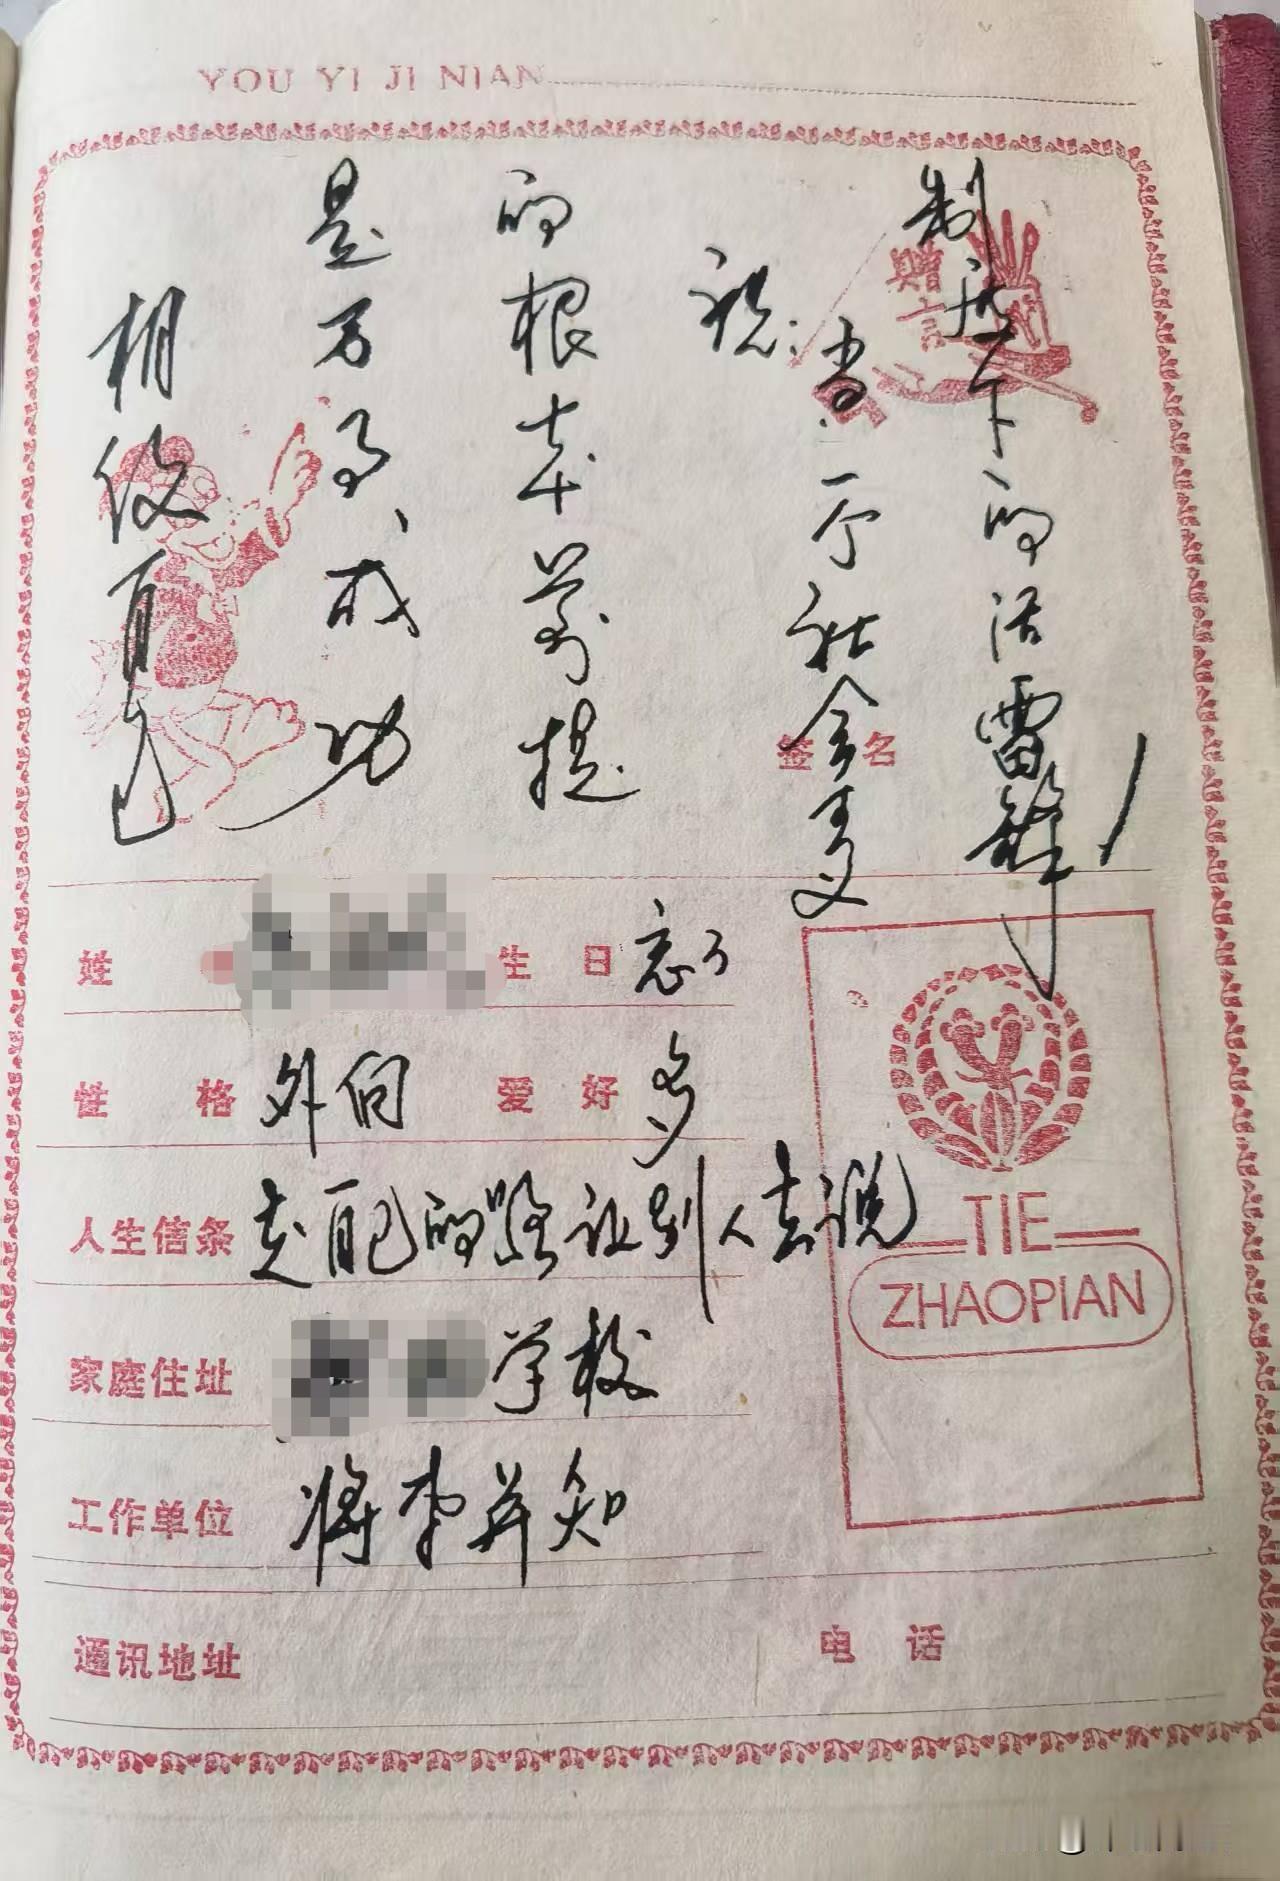 YOU YI JI NIAN
相信自己
是万事成功
的根本前提
祝:
当一个社会主义
制度下的活雷锋!
赠言
签名
姓
生日 忘了
性格 外向 爱好 多
人生信条 走自己的路让别人去说
家庭住址 学校
工作单位 将 知
通讯地址 电话
TIE
ZHAOPIAN